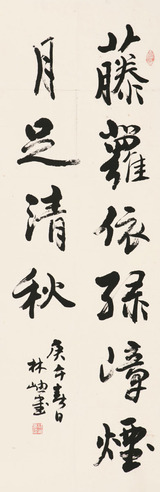 藤蘿依緑嶂煙
月足清秋
庚午春日
林岫書